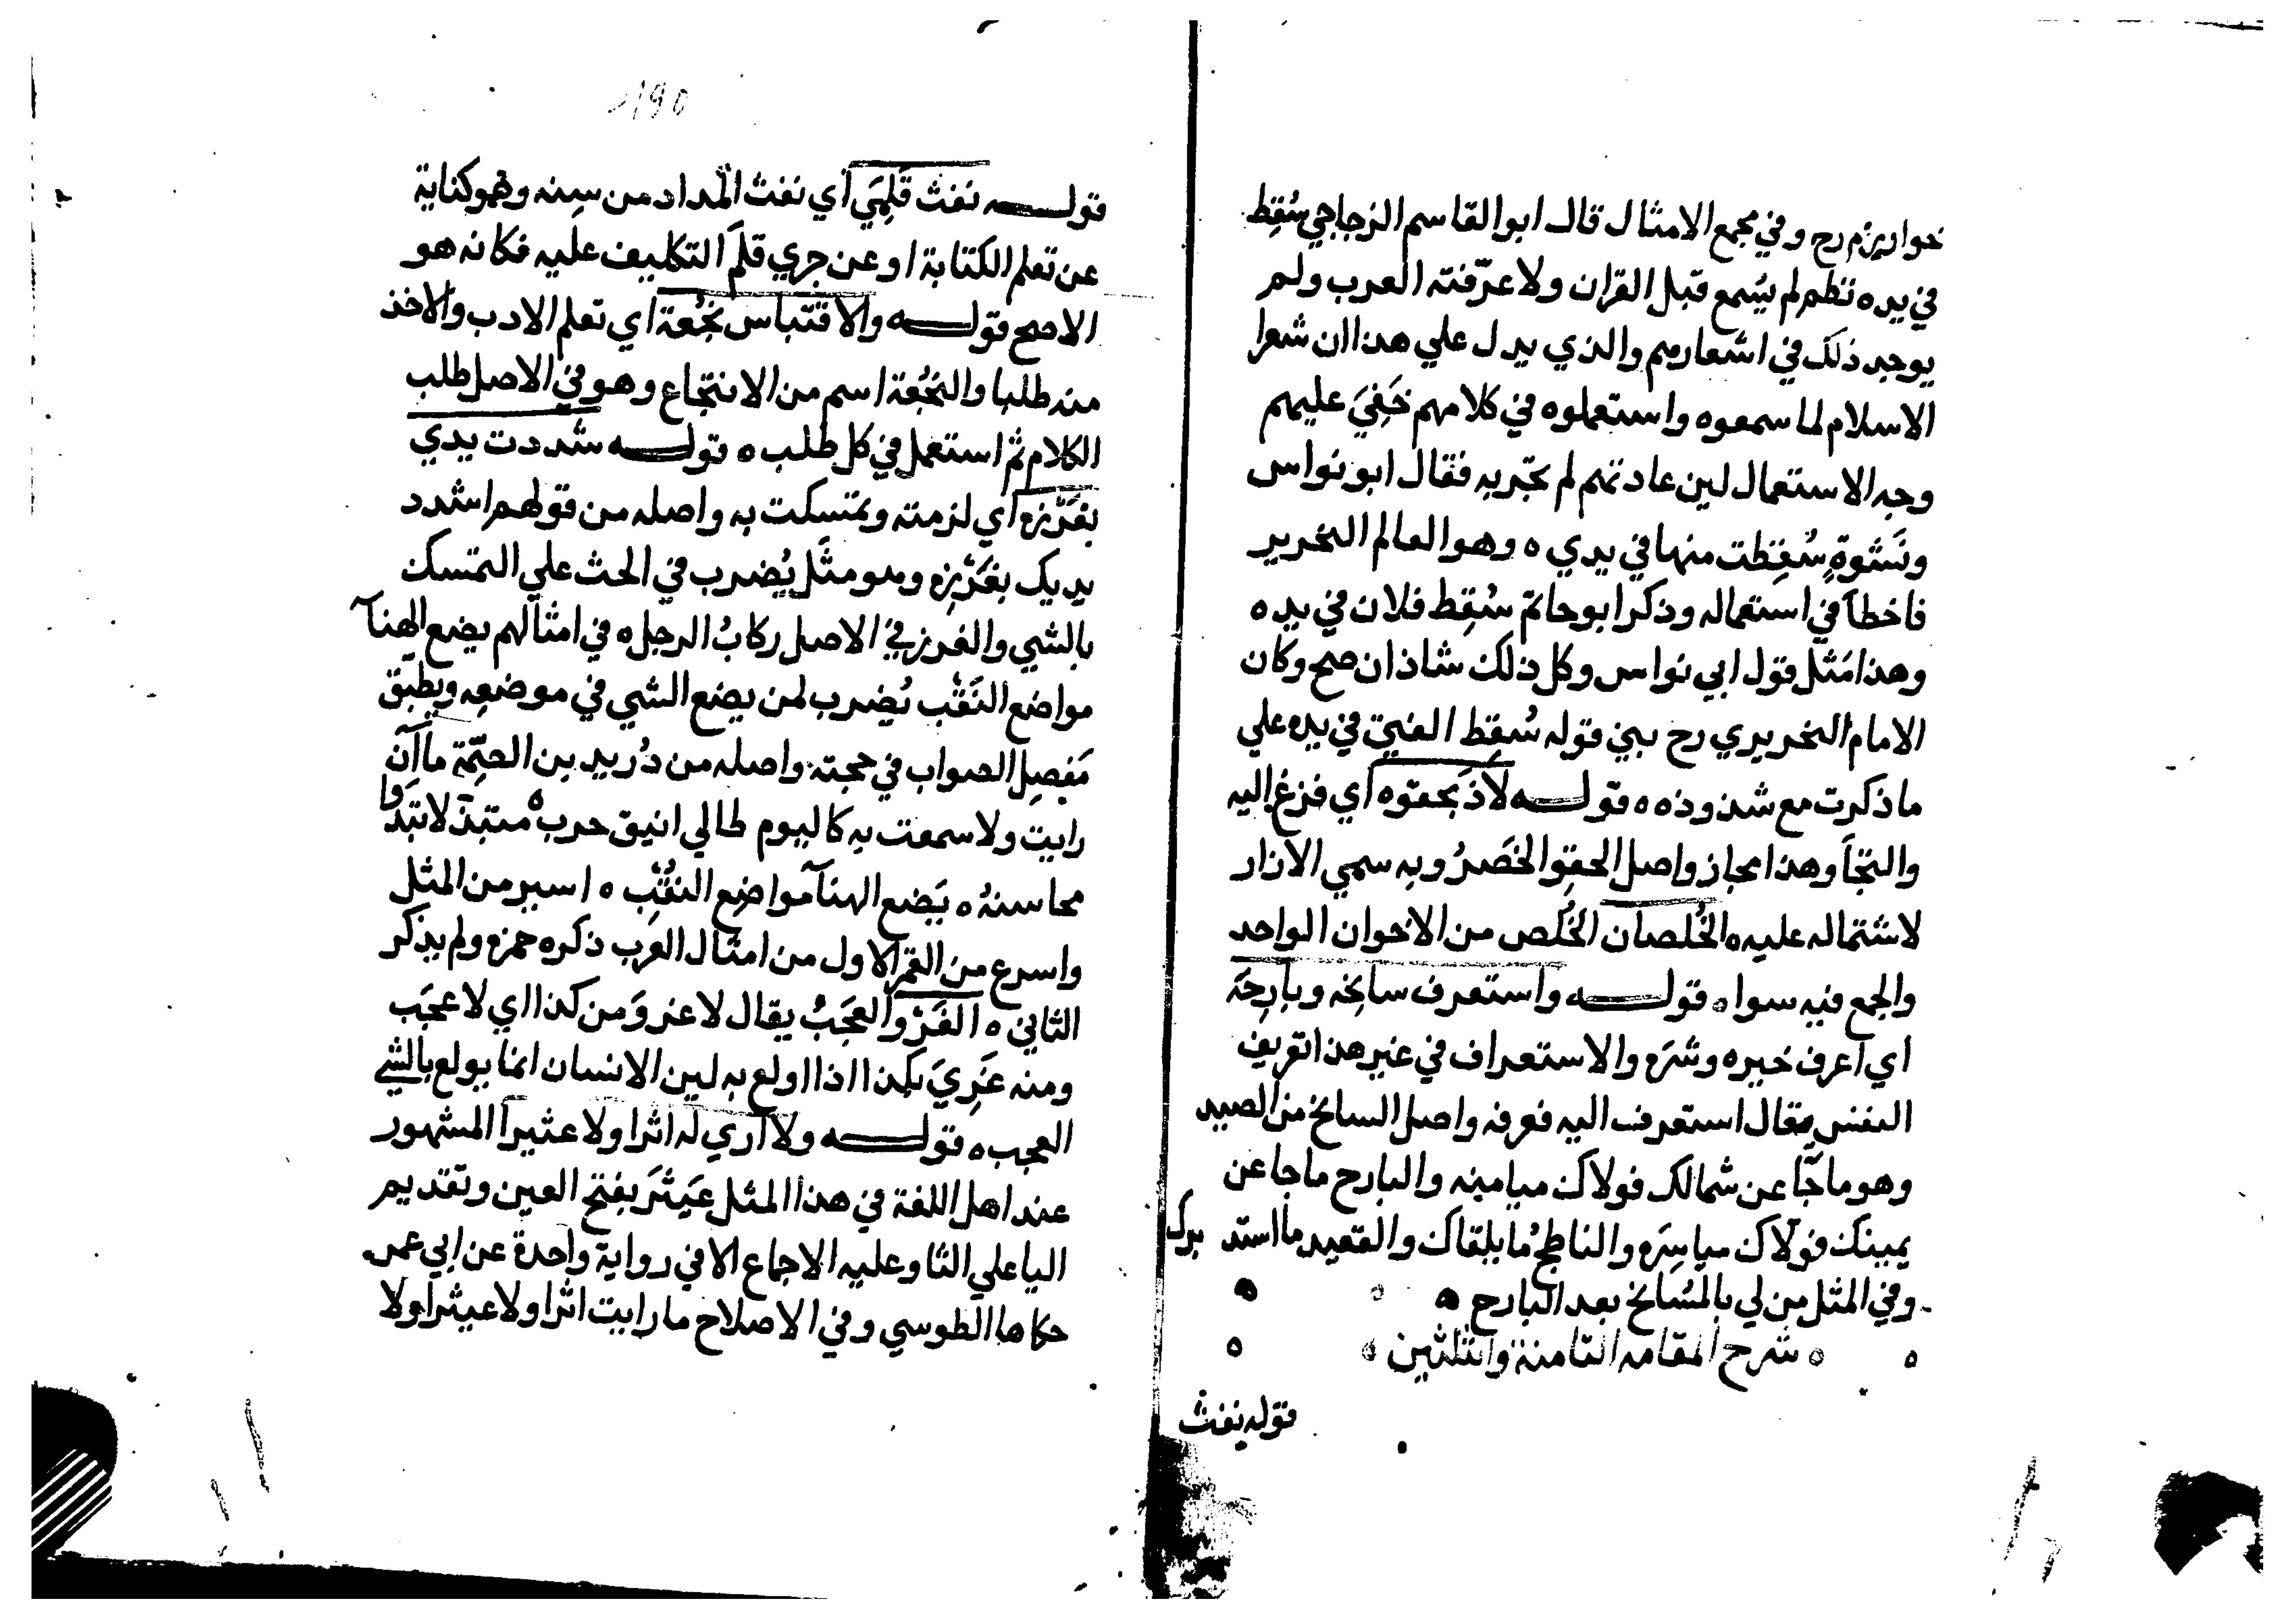 خوارزم رح وفي مجمع الامثال قال ابو القاسم الزجاجي سُقِط
في يده نظم لم يُسمع قبل القران ولا عرّفته العرب ولم
يوجد ذلك في اشعارهم والذي يدل علي هذا ان شعرا
الاسلام لما سمعوه واستعملوه في كلامهم خَفِيَ عليهم
وجه الاستعمال لين عادتهم لم تجر به فقال ابو نواس
ونَشوةٍ سُقِطت منها في يدي ه وهو العالم النحرير
فاخطأ في استعماله وذكر ابو حاتم سُقِط فلان في يده
وهذا مَثل قول ابي نواس وكل ذلك شاذ ان صح وكان
الامام الحريري رح بني قوله سُقِط الفتي في يده علي
ما ذكرت مع شذوذه ه قوله لاذ بحقوه اي فزع اليه
والتجأ وهذا مجاز واصل الحقو الخَصرُ وبه سمي الازار
لاشتماله عليه ه الخُلصان الخُلص من الاخوان الواحد
والجمع فيه سوا ه قوله واستعرف سانحه وبارِحَه
اي اعرف خيره وشرَه والاستعراف في غير هذا تعريف
النفس يقال استعرفت اليه فعرفه واصل السانح من الصيد
وهو ما جآ عن شمالك فولاك ميامينه والبارح ما جا عن
يمينك فولاك مياسِرَه والناطحُ ما يلقاك والقعيد ما استدبرك
وفي المثل من لي بالسُانح بعد البارح ه
ه شرح المقامه الثامنة والثلثين ه
قوله نفث
190
قوله نَفث قَلمِي اي نفث المداد من سِنه وهو كناية
عن تعلم الكتابة او عن جري قلم التكليف عليه فكانه هو
الاصح قوله والاقتباس نُجعة اي تعلم الادب والاخذ
منه طلبا والنُجعة اسم من الانتجاع وهو في الاصل طلب
الكلام ثم استعمل في كل طلب ه قوله شددت يدي
بغَرْزه اي لزمته وتمسكت به واصله من قولهم اشدد
يديك بغَرْزِه وهو مثَل يُضرب في الحث علي التمسك
بالشي والغرز في الاصل ركابُ الرجل ه في امثالهم يضع الهنآ
مواضع النَقْب يُضرب لمن يضع الشي في موضعه ويطبق
مَفصِل الصواب في حجته واصله من دُريد بن الصِمّة ما اَن
رايت ولا سمعت به كاليوم طالي انيق حرب ه متبذلا تبدوا
محاسنهُ ه يَضع الهنآ مواضِع النُقْب ه اسير من المثل
واسرع من القمر الاول من امثال العرب ذكره حمزه ولم يذكر
الثاني ه الغَرْو العَجَبُ يقال لا غروَ من كذا اي لا عجَب
ومنه غَرِيَ بكذا اذا اولع به لين الانسان انما يولع بالشي
العجب ه قوله ولا اري له اثرا ولا عثيرا المشهور
عند اهل اللغة في هذا المثل عَيثَرَ بفتح العين وتقديم
اليا علي الثا وعليه الاجماع الا في رواية واحدة عن ابي عمر
حكاها الطوسي وفي الاصلاح ما رايت اثرا ولا عيثرا ولا